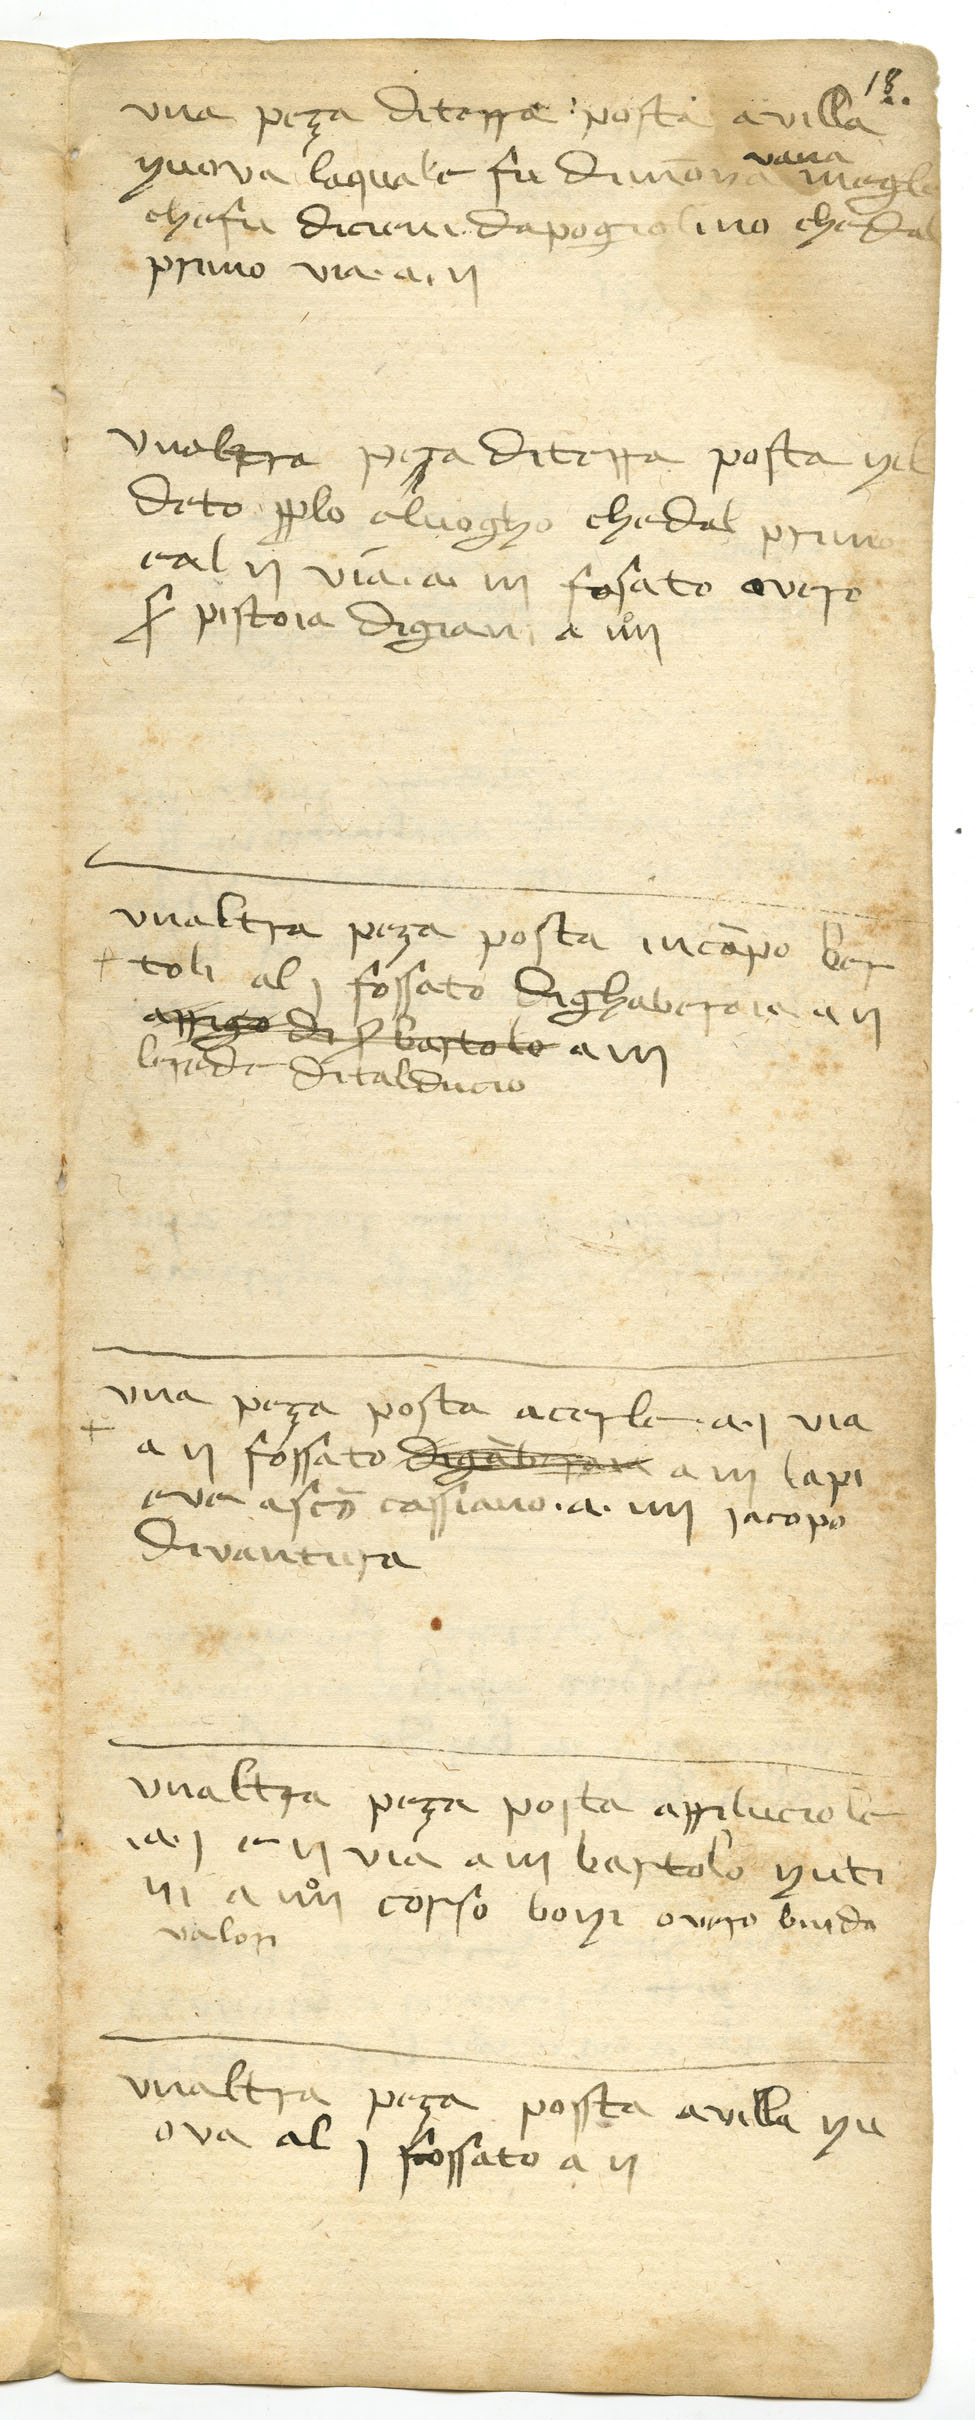 18.
una peza diterra posta avilla
nuova laquale fu dimōna vana mogle
chefu dicieni dapogiolino chedal
primo via. a. ii
unaltra peza diterra posta nel
deto pplo eluogho chedal primo
eal ii via. a. iii fosato overo
ser pistoia digiani a iiii
unaltra peza posta incāpo ber
+ toli al j fossato dighaberaia a ii
arrigo di ser bartolo a iii
lerede ditalducio
una peza posta acerle. a. j via
+ a ii fossato digāberaia a iii lapi
eve ascō cassiano. a. iiii jacopo
divantura
unaltra peza posta arriluciole
ia. j e ii via a iii bartolo nuti
ni a iiii corso boni overo binda
valori
unaltra peza possta avilla nu
ova al j fossato a ii